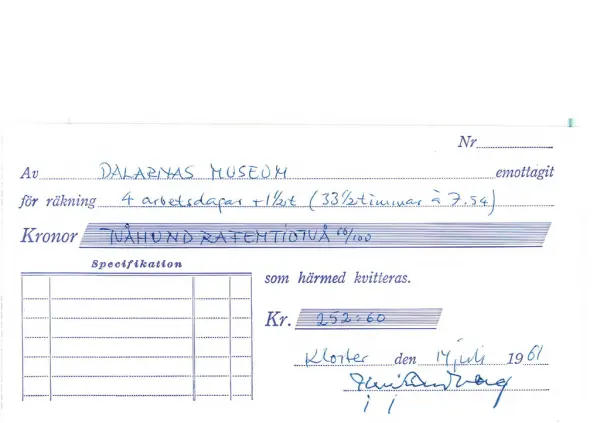 Nr
Av DALARNAS MUSEUM emottagit
för räkning 4 arbetsdagar + 1½t (33½ timmar à 7.54)
Kronor TVÅHUNDRAFEMTIOTVÅ 60/100
Specifikation
som härmed kvitteras.
Kr. 252:60
Kloster den 14 juli 1961